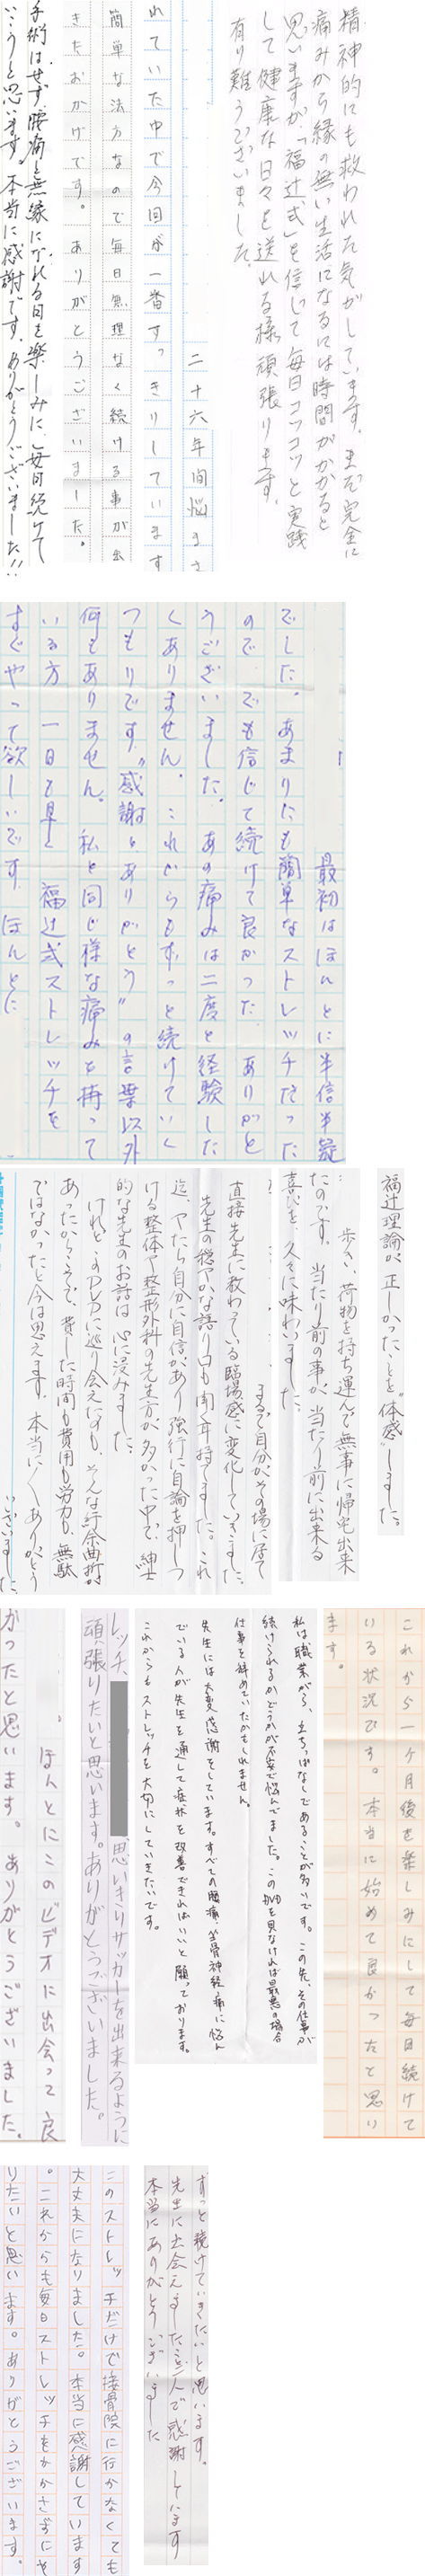 精神的にも救われた気がしています。まだ完全に
痛みから縁の無い生活になるには時間がかかると
思いますが、「福辻式」を信じて毎日コツコツと実践
して健康な日々を送れる様頑張ります。
有り難うございました。
二十六年間悩まさ
れていた中で今回が一番すっきりしています
簡単な方法なので毎日無理なく続ける事が出
きたおかげです。ありがとうございました。
手術はせず、腰痛と無縁になれる日を楽しみに、毎日続けて
いこうと思います。本当に感謝です。ありがとうございました!!
最初はほんとに半信半疑
でした。あまりにも簡単なストレッチだった
ので でも信じて続けて良かった ありがと
うございました。あの痛みは二度と経験した
くありません。これからもずっと続けていく
つもりです。"感謝とありがとう"の言葉以外
何もありません。私と同じ様な痛みを持って
いる方 一日も早く 福辻式ストレッチを
すぐやって欲しいです ほんとに
福辻理論が、正しかったことを"体感"しました。
歩き、荷物を持ち運んで無事に帰宅出来
たのです。当たり前の事が、当たり前に出来る
喜びを、久々に味わいました。
まるで自分がその場に居て
直接先生に教わっている臨場感に変化していきました。
先生の穏やかな語り口も聞く耳持てました。これ
迄、やたら自分に自信があり強行に自論を押しつ
ける整体や整形外科の先生方が多かった中で、紳士
的な先生のお話は心に浸みました。
けれどこのDVDに巡り会えたのも、そんな紆余曲折が
あったからこそで、費した時間も費用も労力も、無駄
ではなかったと今は思えます。本当に〱ありがとう
ございました。
これから一ヶ月後を楽しみにして毎日続けて
いる状況です。本当に始めて良かったと思い
ます。
私は職業がら、立ちっぱなしであることが多いです。この先、その仕事が
続けられるかどうかが不安で悩んでました。このDVDを見なければ最悪の場合
仕事を辞めていたかもしれません。
先生には大変感謝をしています。すべての腰痛・坐骨神経痛に悩ん
でいる人が先生を通して症状を改善できればいいと願っております。
これからもストレッチを大切にしていきたいです。
レッチ、思いきりサッカーを出来るように
頑張りたいと思います。ありがとうございました。
ほんとにこのビデオに出会って良
かったと思います。ありがとうございました。
ずっと続けていきたいと思います。
先生に出会えました
本当にありがとうございました
このストレッチだけで接骨院に行かなくても
大丈夫になりました。本当に感謝しています
。これからも毎日ストレッチをかかさずにや
りたいと思います。ありがとうございます。